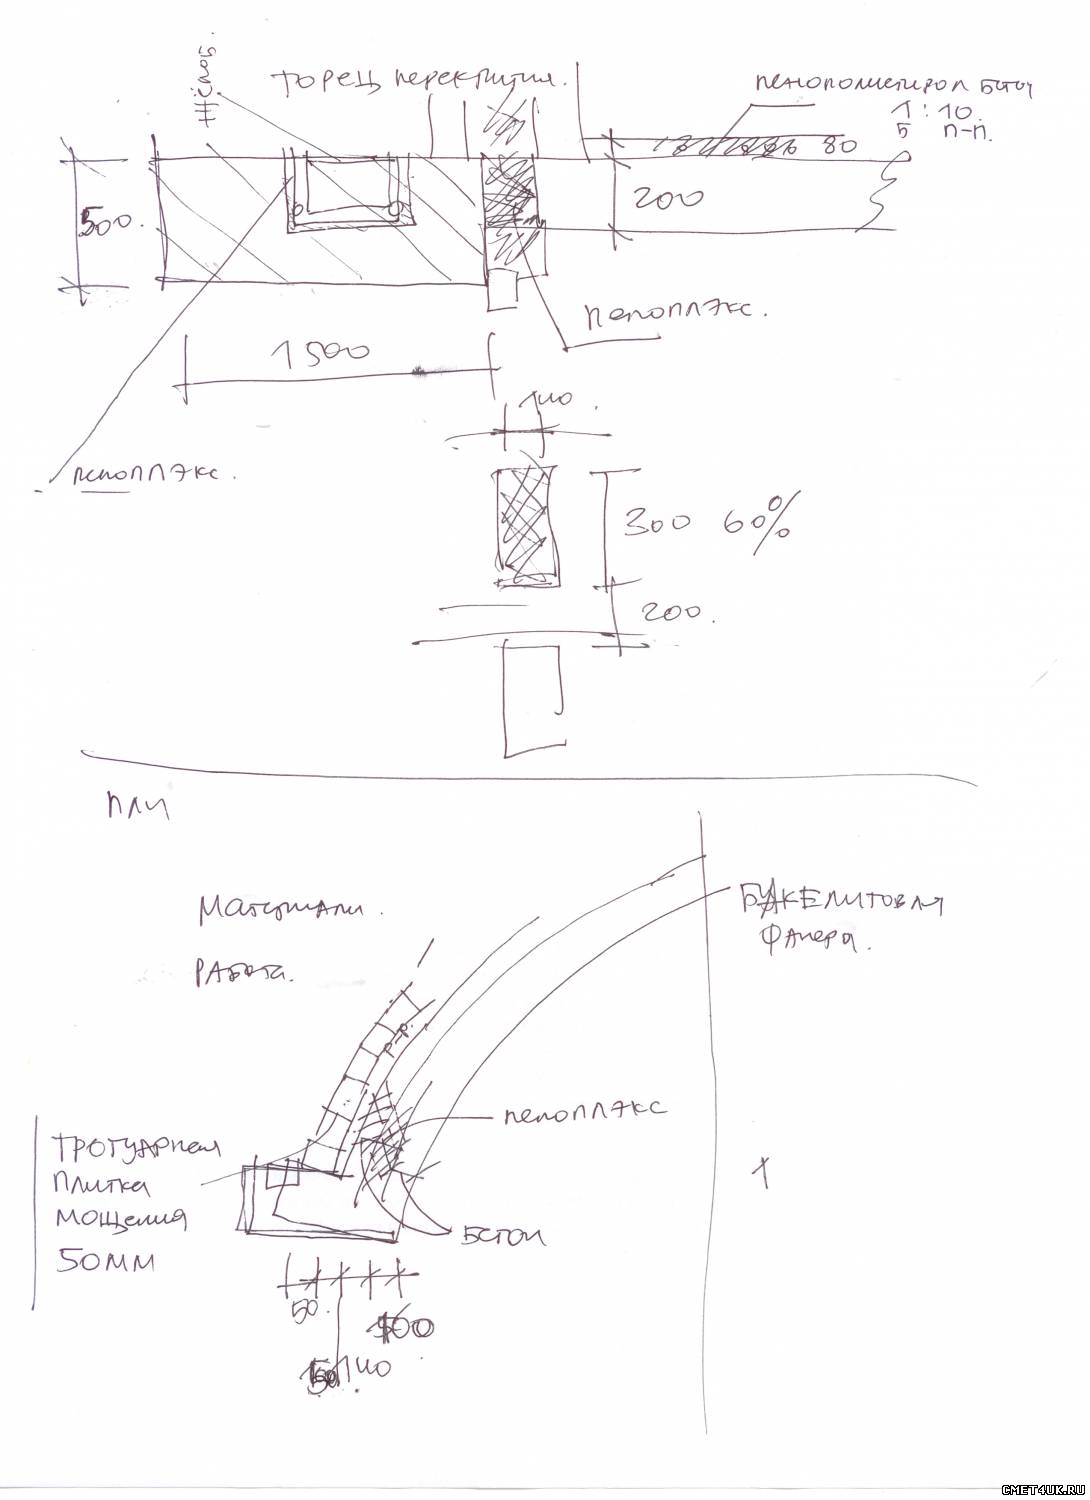 ТОРЕЦ ПЕРЕКРЫТИЯ.
ПЕНОПОЛИСТИРОЛ БЕТОН
1:10.
5 п-п.
80
500.
200
ПЕНОПЛЭКС.
1500
140.
ПЕНОПЛЭКС.
300 60%
200.
МАТЕРИАЛИ.
РАБОТА.
БАКЕЛИТОВАЯ
ФАНЕРА.
Р-Р.
ПЕНОПЛЭКС
ТРОТУАРНАЯ
ПЛИТКА
МОЩЕНИЯ
50ММ
БЕТОН
50.
100
140
CMET4UK.RU